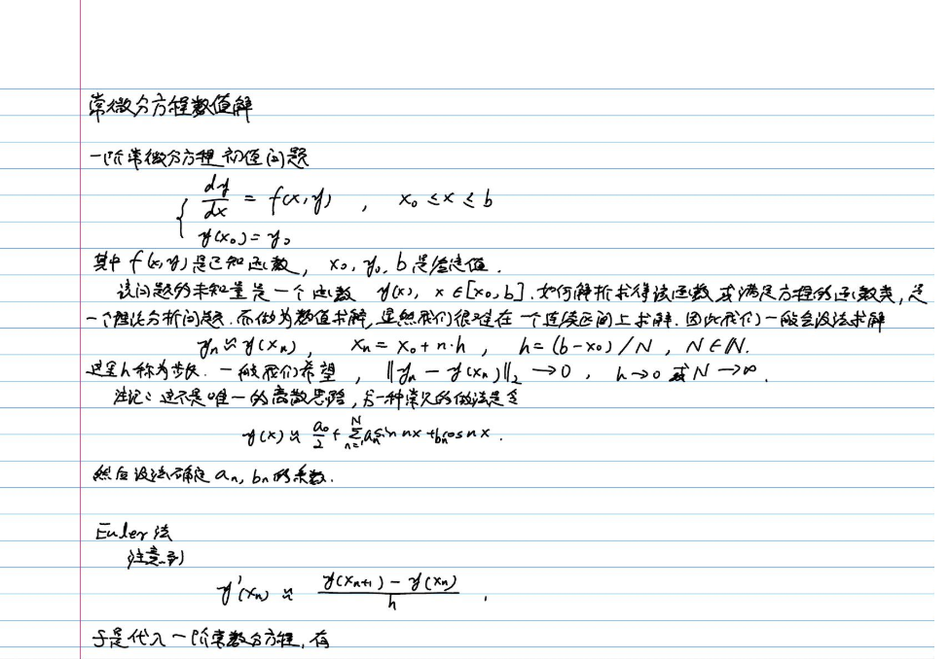 常微分方程数值解
一阶常微分方程初值问题
{ dy/dx = f(x,y) , x₀ ≤ x ≤ b
y(x₀) = y₀
其中 f(x,y) 是已知函数, x₀, y₀, b 是给定值.
该问题的未知量是一个函数 y(x), x ∈ [x₀, b]. 如何解析求得该函数或满足方程的函数类, 是
一个理论分析问题. 而做为数值求解, 显然我们很难在一个连续区间上求解. 因此我们一般会设法求解
yₙ ≈ y(xₙ), xₙ = x₀ + n·h , h = (b-x₀)/N , N ∈ ℕ.
这里 h 称为步长. 一般我们希望, ||yₙ - y(xₙ)||₂ → 0 , h → 0 或 N → ∞.
注记: 这不是唯一的离散思路, 另一种常见的做法是令
y(x) ≈ a₀/2 + Σₙ₌₁ᴺ aₙ sin nx + bₙ cos nx .
然后设法确定 aₙ, bₙ 的系数.
Euler 法
注意到
y'(xₙ) ≈ (y(xₙ₊₁) - y(xₙ))/h .
于是代入一阶常微分方程, 有